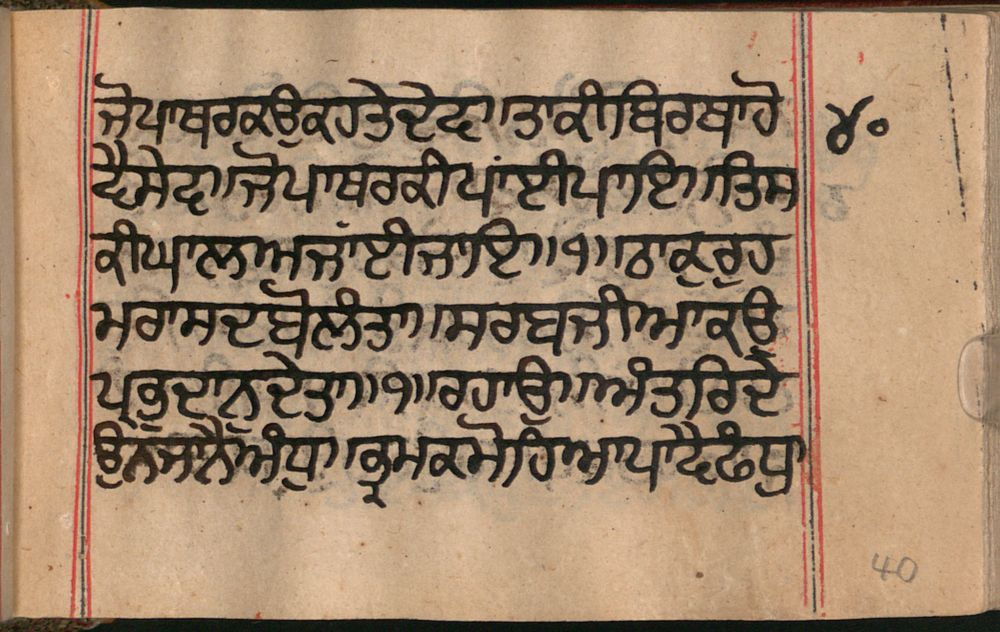 ਜੋਪਾਥਰਕਉਕਹਤੇਦੇਵ।ਤਾਕੀਬਿਰਥਾਹੋ
ਵੈਸੇਵ।।ਜੋਪਾਥਰਕੀਪਾਂਈਪਾਇ।।ਤਿਸ
ਕੀਘਾਲਅਜਾਂਈਜਾਇ।।੧।।ਠਾਕੁਰੁਹ
ਮਰਾਸਦਬੋਲੰਤਾ।।ਸਰਬਜੀਆਕਉ
ਪ੍ਰਭੁਦਾਨੁਦੇਤਾ।।੧।।ਰਹਾਉ।।ਅੰਤਰਿਦੇ
ਉਨਜਾਨੈਅੰਧੁ।।ਭ੍ਰਮਕਮੋਹਿਆਪਾਵੈਫੰਧੁ।
੪੦
40